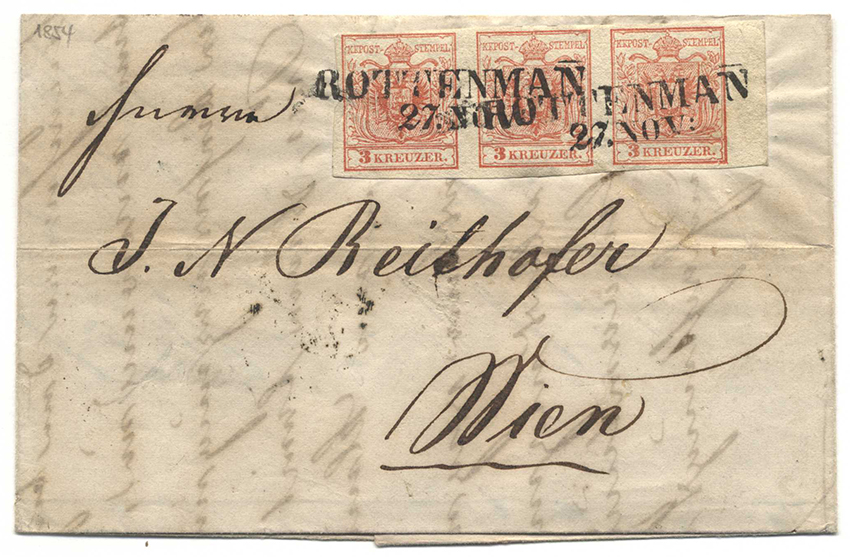 1854
KKPOST-STEMPEL KKPOST-STEMPEL KKPOST-STEMPEL
ROTTENMAN ROTTENMAN
27. NOV: 27. NOV:
3 KREUZER. 3 KREUZER. 3 KREUZER.
Herrn
J. N Reithofer
Wien